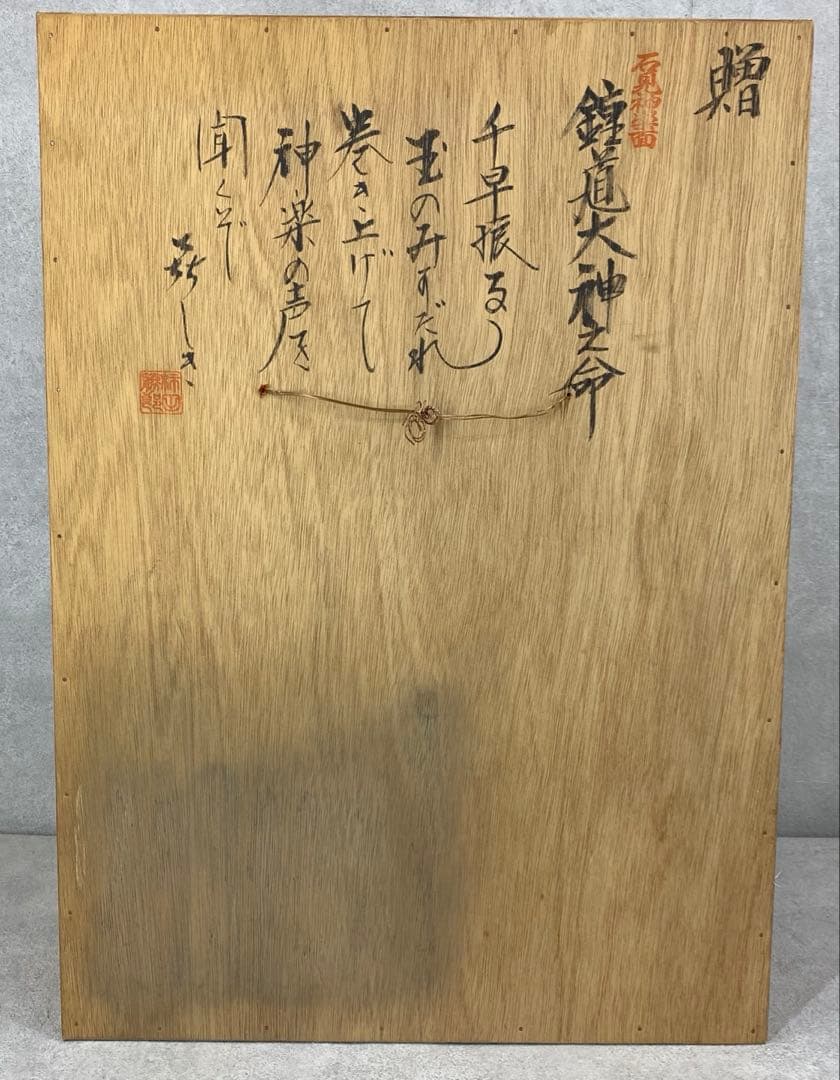 贈
石見神楽面
鐘道大神之命
千早振る
玉のみすだれ
巻き上げて
神楽の声を
聞くぞ
喜しき
柿田勝郎